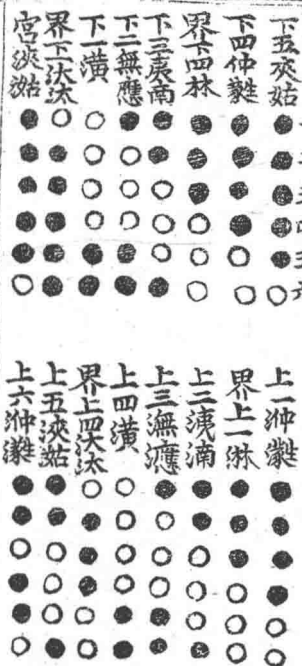 下五夾姑
下四仲蕤
界下四林
下三夷南
下二無應
下一潢
界下一汏汰
宮浹㴌
上一㳞㶋
界上一淋
上二洟湳
上三潕㶐
上四潢
界上四汏汰
上五浹㴌
上六㳞㶋